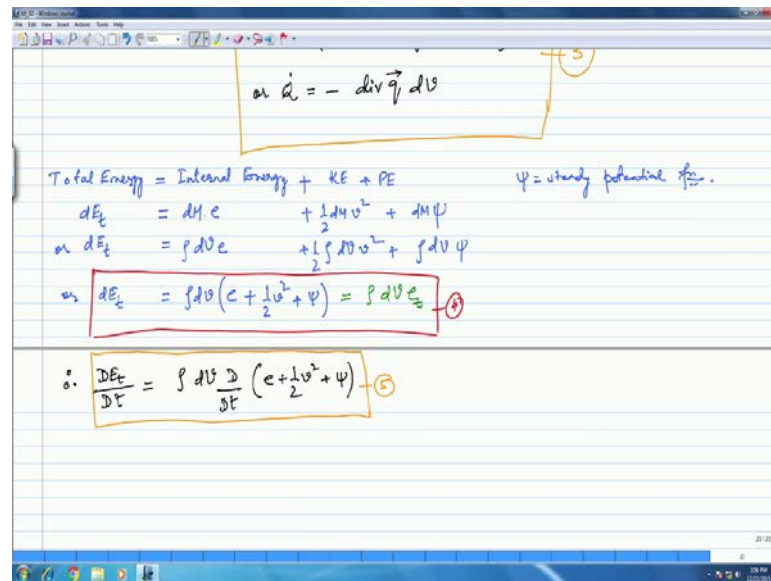 File Edit View Insert Actions Tools Help
3
or Q̇ = - div q⃗ dV
Total Energy = Internal Energy + KE + PE ψ = steady potential fn.
dE_t = dM e + 1/2 dM v² + dM ψ
or dE_t = ρ dV e + 1/2 ρ dV v² + ρ dV ψ
or dE_t = ρ dV (e + 1/2 v² + ψ) = ρ dV e_t 4
∴ DE_t/Dt = ρ dV D/Dt (e + 1/2 v² + ψ) 5